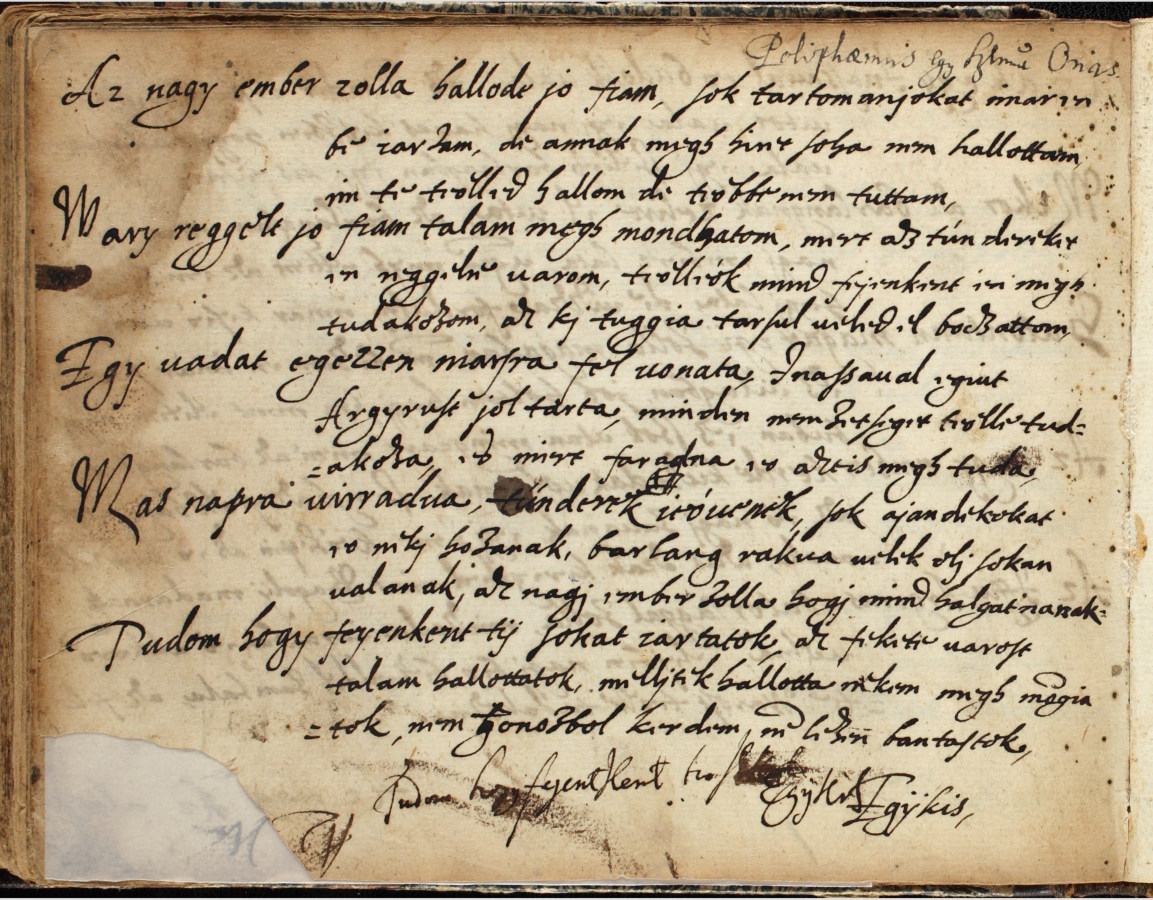 Poliphæmus Egy Szemű Orias.
Az nagy ember zolla hallode jo fiam, sok tartomanjokat imar en
be iarżam, de annak megh hiret soha nem hallottam,
im te teolled hallom de teobbe nem tuttam,
Wary reggelt jo fiam talam megh mondhatom, mert aż tündereket
en reggelre varom, teolleök mind fejenkent en megh
tudakożom, aż kj tuggia tarsul veled el bocżattom,
Egy vadat egeszzen niarsra fel vonata, Inassaval egiut
Argyrust jol tarta, minden nemżetseget teolle tud=
=akoża, es mert faradna eo aztis megh tuda,
Mas napra virradva, tünderek ieövenek, sok ajandekokat
eo nekj hożanak, barlang rakva velek olj sokan
valanak, aż nagj ember żolla hogj mind halgatnanak=
Tudom hogy feyenkent tij sokat iartatok, aż fekete varost
talam hallottatok, melljtek hallotta nekem megh mõgia
=tok, nem gonożbol kerdem, nẽ leżen bantastok,
Tudom hogy fejenkent
Egÿkis,